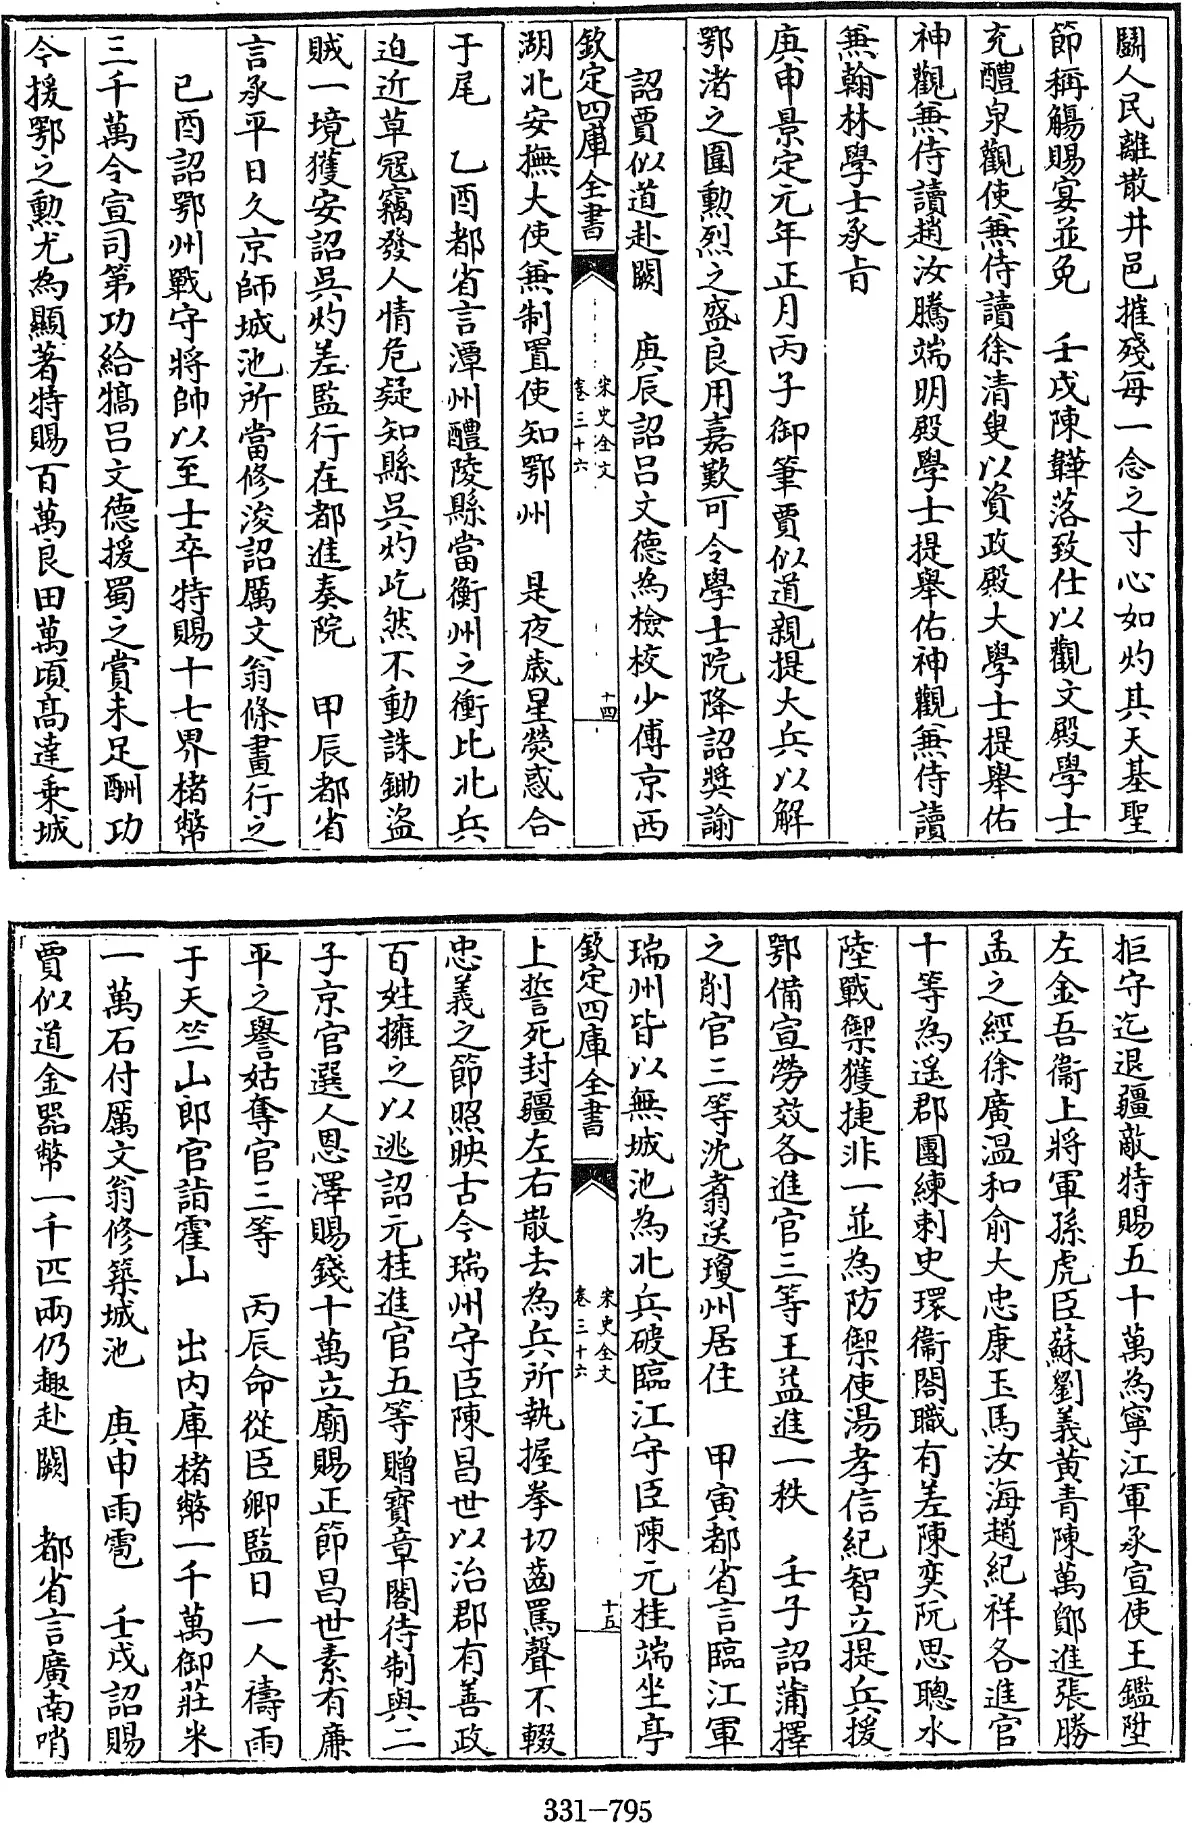 鬬人民離散井邑摧殘每一念之寸心如灼其天基聖
節稱觴賜宴並免　壬戌陳韡落致仕以觀文殿學士
充醴泉觀使兼侍讀徐清叟以資政殿大學士提舉佑
神觀兼侍讀趙汝騰端明殿學士提舉佑神觀兼侍讀
兼翰林學士承旨
庚申景定元年正月丙子御筆賈似道親提大兵以解
鄂渚之圍勲烈之盛良用嘉歎可令學士院降詔獎諭
詔賈似道赴闕　庚辰詔吕文德為檢校少傅京西
欽定四庫全書
宋史全文
卷三十六
十四
湖北安撫大使兼制置使知鄂州　是夜歲星熒惑合
于尾　乙酉都省言潭州醴陵縣當衡州之衝比北兵
迫近草冦竊發人情危疑知縣吳灼屹然不動誅鋤盜
賊一境獲安詔吳灼差監行在都進奏院　甲辰都省
言承平日久京師城池所當修浚詔厲文翁條畫行之
已酉詔鄂州戰守將帥以至士卒特賜十七界楮幣
三千萬令宣司第功給犒吕文德援蜀之賞未足酬功
今援鄂之勲尤為顯著特賜百萬良田萬頃高達乗城
拒守迄退疆敵特賜五十萬為寧江軍承宣使王鑑陞
左金吾衞上將軍孫虎臣蘇劉義黄青陳萬鄭進張勝
孟之經徐廣温和俞大忠康玉馬汝海趙紀祥各進官
十等為遥郡團練刺史環衞閤職有差陳奕阮思聰水
陸戰禦獲捷非一並為防禦使湯孝信紀智立提兵援
鄂備宣勞效各進官三等王益進一秩　壬子詔蒲擇
之削官三等沈翥送瓊州居住　甲寅都省言臨江軍
瑞州皆以無城池為北兵破臨江守臣陳元桂端坐亭
欽定四庫全書
宋史全文
卷三十六
十五
上誓死封疆左右散去為兵所執握拳切齒罵聲不輟
忠義之節照映古今瑞州守臣陳昌世以治郡有善政
百姓擁之以逃詔元桂進官五等贈寶章閣待制與二
子京官選人恩澤賜錢十萬立廟賜正節昌世素有廉
平之譽姑奪官三等　丙辰命從臣卿監日一人禱雨
于天竺山郎官詣霍山　出内庫楮幣一千萬御莊米
一萬石付厲文翁修築城池　庚申雨雹　壬戌詔賜
賈似道金器幣一千匹兩仍趣赴闕　都省言廣南哨
331-795